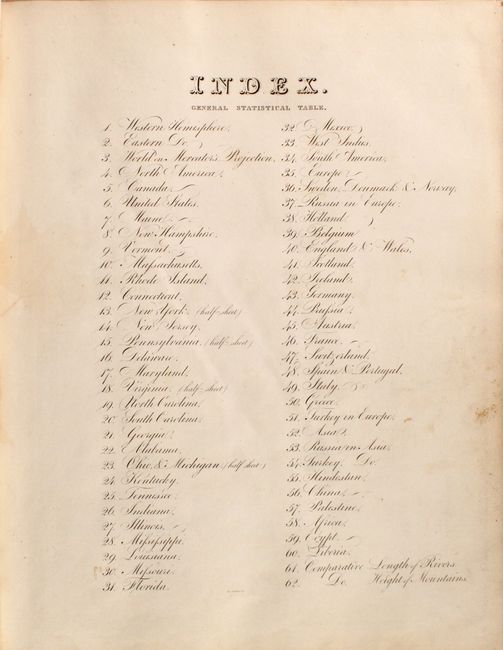 INDEX.
GENERAL STATISTICAL TABLE.
1. Western Hemisphere.
2. Eastern Do.
3. World on Mercators Projection.
4. North America.
5. Canada.
6. United States.
7. Maine.
8. New Hampshire.
9. Vermont.
10. Massachusetts.
11. Rhode Island.
12. Connecticut.
13. New York. (half-sheet)
14. New Jersey.
15. Pennsylvania. (half-sheet)
16. Delaware.
17. Maryland.
18. Virginia. (half-sheet)
19. North Carolina.
20. South Carolina.
21. Georgia.
22. Alabama.
23. Ohio, & Michigan. (half-sheet)
24. Kentucky.
25. Tennessee.
26. Indiana.
27. Illinois.
28. Mississippi.
29. Louisiana.
30. Missouri.
31. Florida.
32. Mexico.
33. West Indies.
34. South America.
35. Europe.
36. Sweden, Denmark & Norway.
37. Russia in Europe.
38. Holland
39. Belgium
40. England & Wales.
41. Scotland.
42. Ireland.
43. Germany.
44. Prussia.
45. Austria.
46. France.
47. Switzerland.
48. Spain & Portugal.
49. Italy.
50. Greece.
51. Turkey in Europe.
52. Asia.
53. Russia in Asia.
54. Turkey. Do.
55. Hindostan.
56. China.
57. Palestine.
58. Africa.
59. Egypt.
60. Liberia.
61. Comparative Length of Rivers.
62. Do. Height of Mountains.